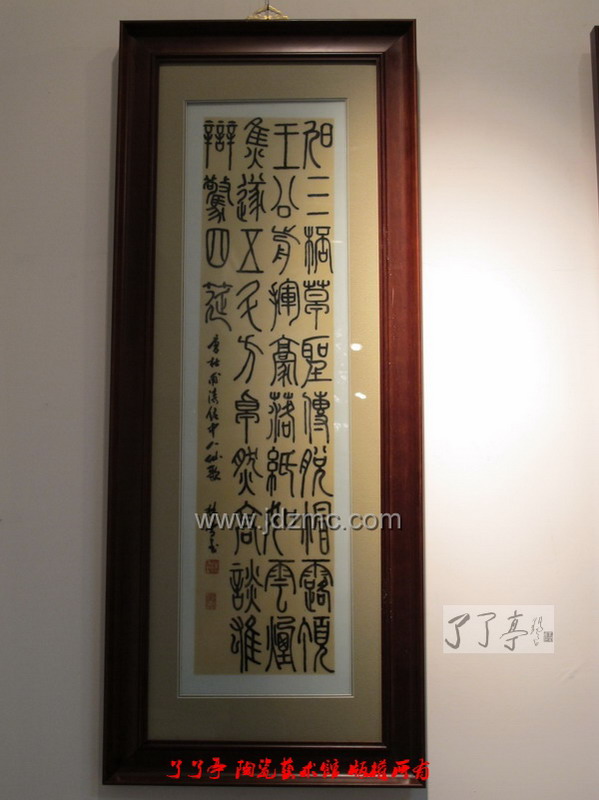 旭三桮草聖傳脫帽露頂
王公前揮豪落紙如雲煙
焦遂五斗方卓然高談雄
辯驚四筵
唐杜甫詩飲中八仙歌
www.jdzmc.com
了了亭
了了亭 陶瓷艺术馆 版权所有